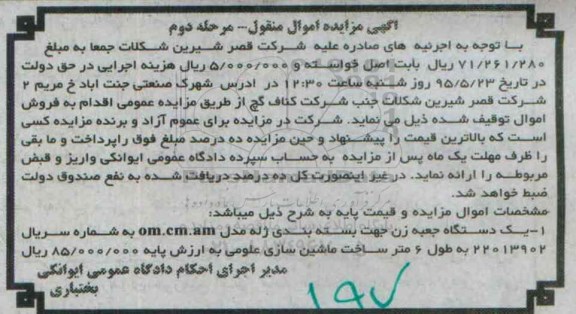 آگهی مزایده اموال منقول-- مرحله دوم
با توجه به اجرئیه های صادره علیه شرکت قصر شیرین شکلات جمعا به مبلغ
۷۱/۲۶۱/۲۸۰ ریال بابت اصل خواسته و ۵/۰۰۰/۰۰۰ ریال هزینه اجرایی در حق دولت
در تاریخ ۹۵/۵/۲۳ روز شنبه ساعت ۱۲:۳۰ در ادرس شهرک صنعتی جنت اباد خ مریم ۲
شرکت قصر شیرین شکلات جنب شرکت کناف گچ از طریق مزایده عمومی اقدام به فروش
اموال توقیف شده ذیل می نماید. شرکت در مزایده برای عموم آزاد و برنده مزایده کسی
است که بالاترین قیمت را پیشنهاد و حین مزایده ده درصد مبلغ فوق راپرداخت و ما بقی
را ظرف مهلت یک ماه پس از مزایده به حساب سپرده دادگاه عمومی ایوانکی واریز و قبض
مربوطه را ارائه نماید. در غیر اینصورت کل ده درصد دریافت شده به نفع صندوق دولت
ضبط خواهد شد.
مشخصات اموال مزایده و قیمت پایه به شرح ذیل میباشد:
۱-یک دستگاه جعبه زن جهت بسته بندی ژله مدل om.cm.am به شماره سریال
۲۲۰۱۳۹۰۲ به طول ۶ متر ساخت ماشین سازی علومی به ارزش پایه ۸۵/۰۰۰/۰۰۰ ریال
مدیر اجرای احکام دادگاه عمومی ایوانکی
بختیاری
۱۹۷